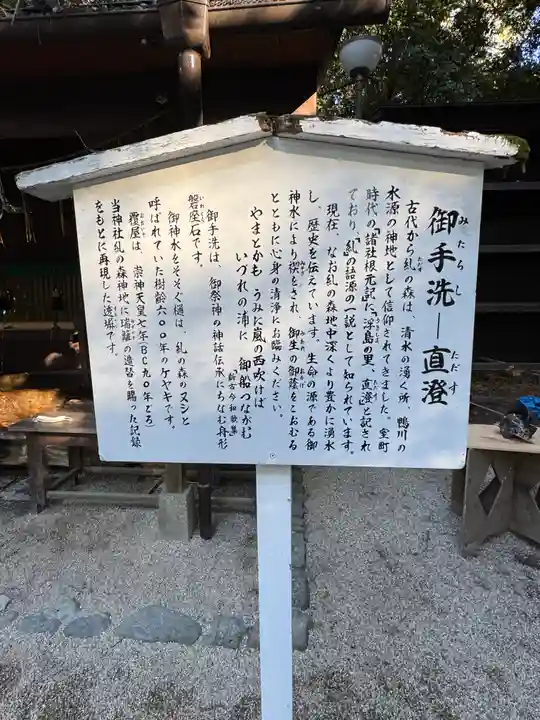 御手洗―直澄
みたらし ただす
古代から糺の森は、清水の湧く所、鴨川の
水源の神地として信仰されてきました。室町
時代の『諸社根元記』に「浮島の里、直澄」と記され
ており、「糺」の語源の一説として知られています。
現在、なお糺の森地中深くより豊かに湧水
し、歴史を伝えています。生命の源である御
神水により禊をされ、御生の御蔭をこおむる
とともに心身の清浄にお臨みください。
やまとかも うみに嵐の西吹けば
いづれの浦に 御船つながむ
「新古今和歌集」
御手洗は、御祭神の神話伝承にちなむ舟形
磐座石です。
御神水をそそぐ樋は、糺の森のヌシと
呼ばれていた樹齢六〇〇年のケヤキです。
覆屋は、崇神天皇七年(BC九〇年)ごろ
当神社糺の森神地に瑞籬の造替を賜った記録
をもとに再現した遺構です。